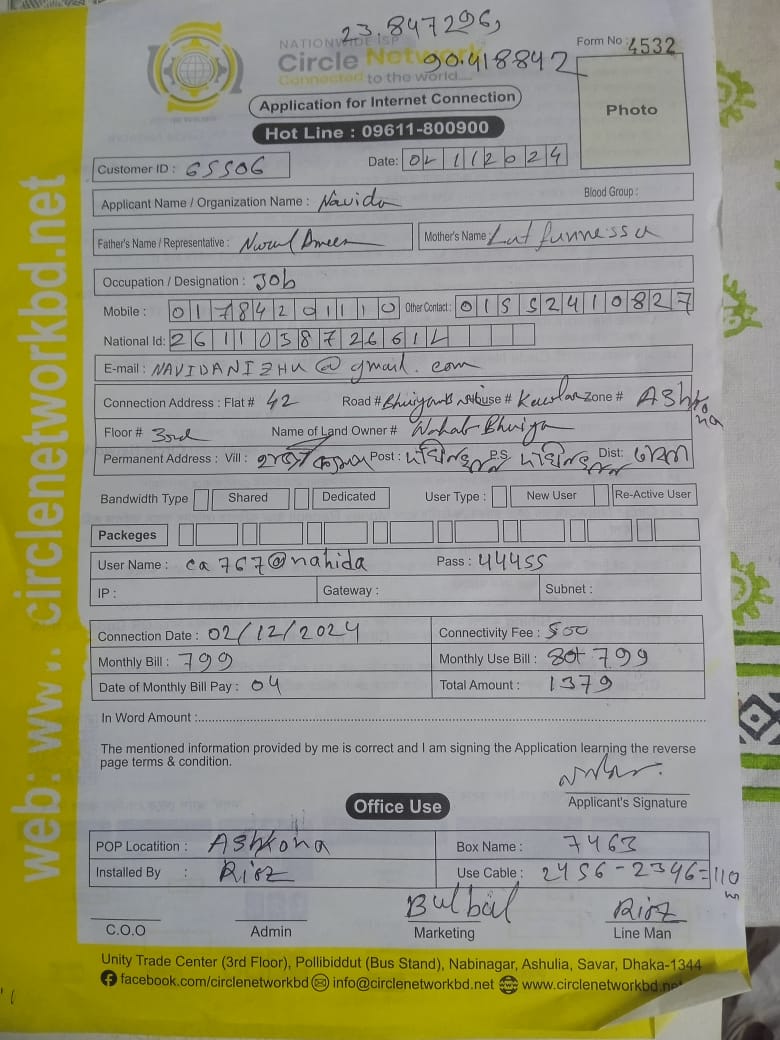 23.847296,
90.418842
NATIONWIDE ISP
Circle Network
Connected to the world....
Form No : 4532
Photo
Application for Internet Connection
Hot Line : 09611-800900
Customer ID : 65506
Date:
Applicant Name / Organization Name : Navida
Blood Group :
Father's Name / Representative : Nurul Ameen
Mother's Name : Lutfunnessa
Occupation / Designation : Job
Mobile : 01784201110 Other Contact : 01552410827
National Id:
E-mail : NAVIDANIZHU@gmail.com
Connection Address : Flat # 42 Road # House # Kawlar Zone # Ashkona
Floor # 3rd Name of Land Owner # Wahab Bhuiya
Permanent Address : Vill : Post : P.S: Dist:
Bandwidth Type Shared Dedicated User Type : New User Re-Active User
Packeges
User Name : ca767@nahida Pass : 44455
IP : Gateway : Subnet :
Connection Date : 02/12/2024 Connectivity Fee : 500
Monthly Bill : 799 Monthly Use Bill : 80+799
Date of Monthly Bill Pay : 04 Total Amount : 1379
In Word Amount :
The mentioned information provided by me is correct and I am signing the Application learning the reverse
page terms & condition.
Applicant's Signature
Office Use
POP Locatition : Ashkona Box Name : 7463
Installed By : Riaz Use Cable : 2456-2346=110 m
Bulbul Riaz
C.O.O Admin Marketing Line Man
Unity Trade Center (3rd Floor), Pollibiddut (Bus Stand), Nabinagar, Ashulia, Savar, Dhaka-1344
facebook.com/circlenetworkbd info@circlenetworkbd.net www.circlenetworkbd.net
web: ww.. circlenetworkbd.net